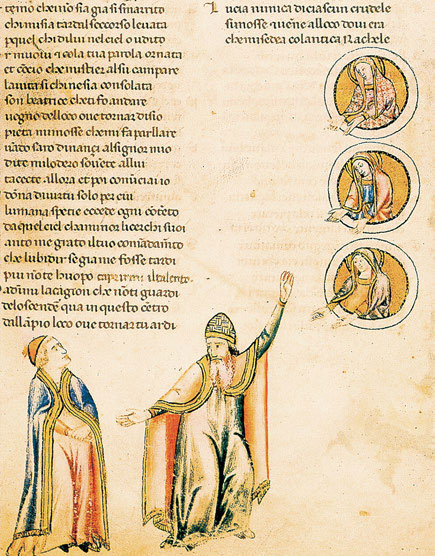 temo che nō sia gia si smarrito
chimisia tardal soccorso leuata
p quel chi di lui nel ciel o udito
r muoui ⁊ cola tua parola ornata
et cō cio che mistier alsu cāpare
laiuta si chi nesia consolata
son beatrice che ti fo andare
uegno del loco oue tornar disio
mi mosse che mi fa parllare
saro dināçi al signor mio
di te mi lodero souēte allui
tacecte allora et poi comīciai io
dōna di uirtu solo per cui
lumana spetie eccede ogni cōtēto
da quel ciel cha minor li cerchi suoi
anto me grato il tuo comādamēto
che lubidir se gia me fosse tardi
piu nō te huopo aprirmi il talento
dimi la cagion che nō ti guardi
delo scende qua in questo cētro
dallāpio loco oue tornar tu ardi
Lucia nimica di ciascun crudele
si mosse ⁊ uēne alloco doui era
che mi sedea co lantica Rachele